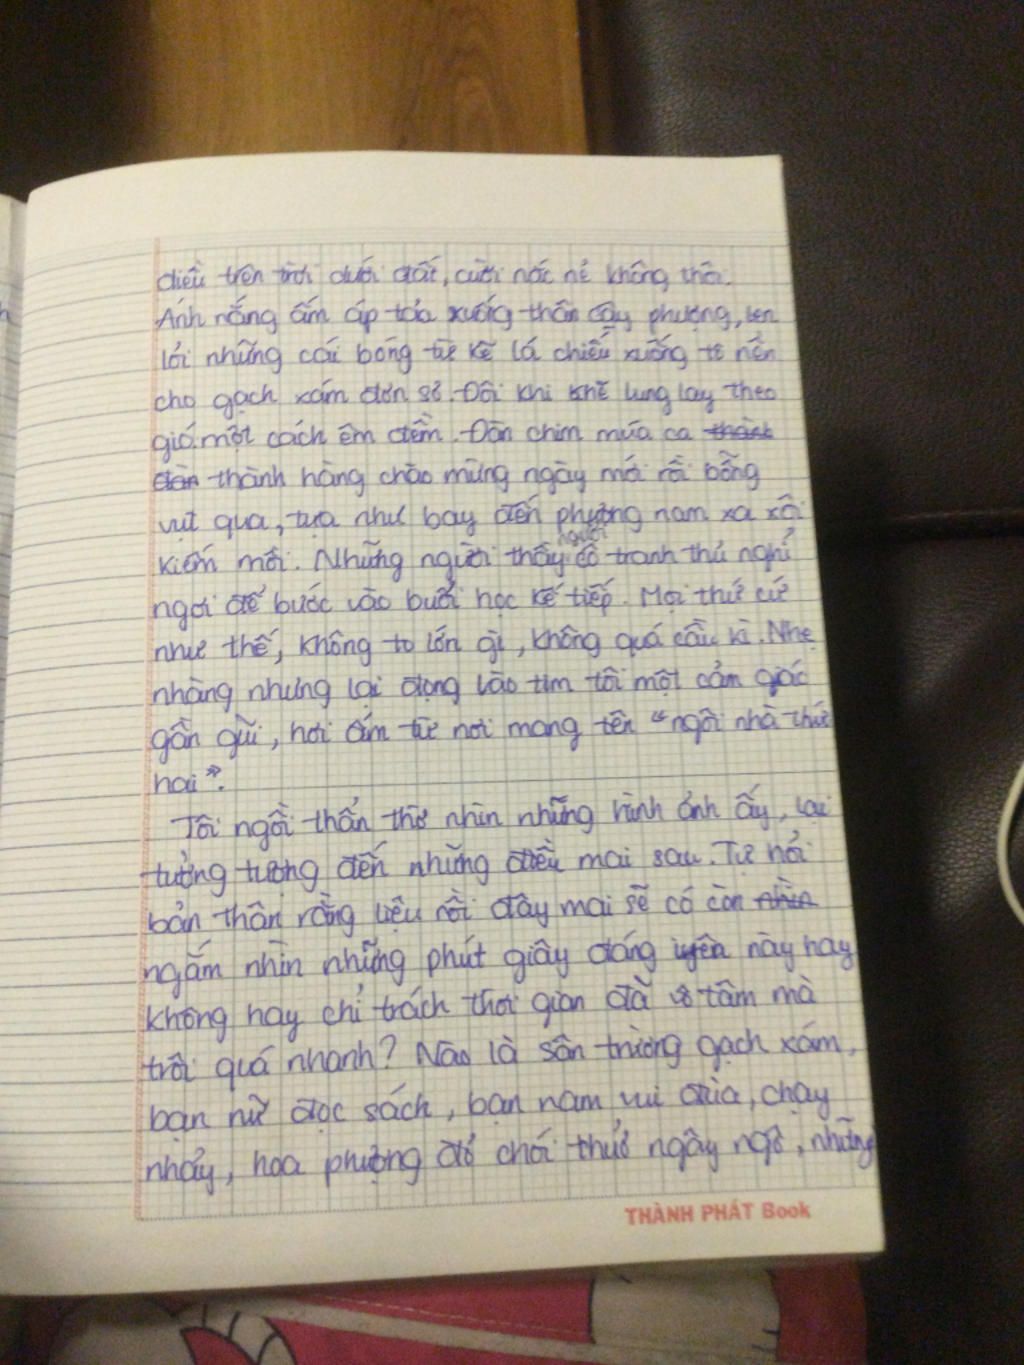 điều trên trời dưới đất, cười nắc nẻ không thôi.
Ánh nắng ấm áp tỏa xuống thân cây phượng, len
lỏi những cái bóng từ kẽ lá chiếu xuống tô nền
cho gạch xám đơn sơ. Đôi khi khẽ lung lay theo
gió một cách êm đềm. Đàn chim múa ca thành
đàn thành hàng chào mừng ngày mới rồi bỗng
vụt qua, tựa như bay đến phương nam xa xôi
kiếm mồi. Những người thầy người cô tranh thủ nghỉ
ngơi để bước vào buổi học kế tiếp. Mọi thứ cứ
như thế, không to lớn gì, không quá cầu kì. Nhẹ
nhàng nhưng lại đọng vào tim tôi một cảm giác
gần gũi, hơi ấm từ nơi mang tên "ngôi nhà thứ
hai".
Tôi ngồi thẩn thơ nhìn những hình ảnh ấy, lại
tưởng tượng đến những điều mai sau. Tự hỏi
bản thân rằng liệu rồi đây mai sẽ có còn nhìn
ngắm nhìn những phút giây đáng yên này hay
không hay chỉ trách thời gian đã vô tâm mà
trôi quá nhanh? Nào là sân trường gạch xám,
bạn nữ đọc sách, bạn nam vui đùa, chạy
nhảy, hoa phượng đỏ chói thuở ngây ngô, những
THÀNH PHÁT Book